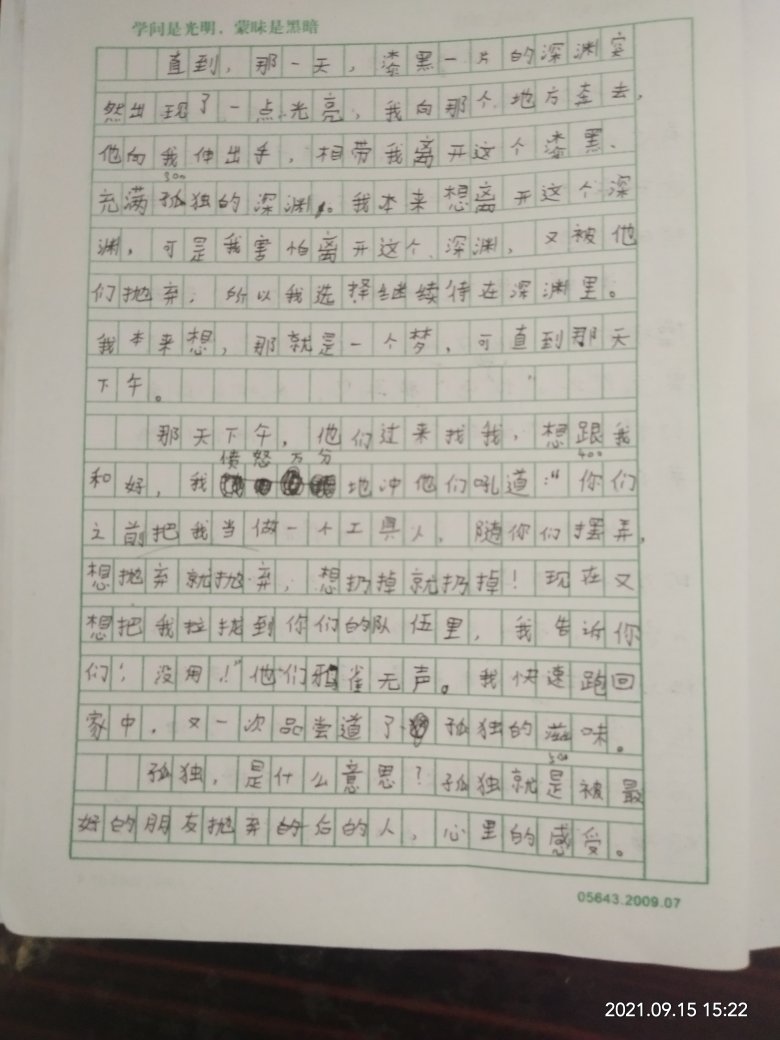 学问是光明，蒙昧是黑暗
直到，那一天，漆黑一片的深渊突
然出现了一点光亮，我向那个地方奔去，
他向我伸出手，相带我离开这个漆黑、
300
充满孤独的深渊。我本来想离开这个深
渊，可是我害怕离开这个深渊，又被他
们抛弃，所以我选择继续待在深渊里。
我本来想，那就是一个梦，可直到那天
下午。
那天下午，他们过来找我，想跟我
400
愤怒万分
和好，我地冲他们吼道："你们
之前把我当做一个工具人，随你们摆弄，
想抛弃就抛弃，想扔掉就扔掉！现在又
想把我拉拢到你们的队伍里，我告诉你
们！没用！"他们鸦雀无声。我快速跑回
家中，又一次品尝道了孤独的滋味。
500
孤独，是什么意思？孤独就是被最
好的朋友抛弃的后的人，心里的感受。
05643.2009.07
2021.09.15 15:22